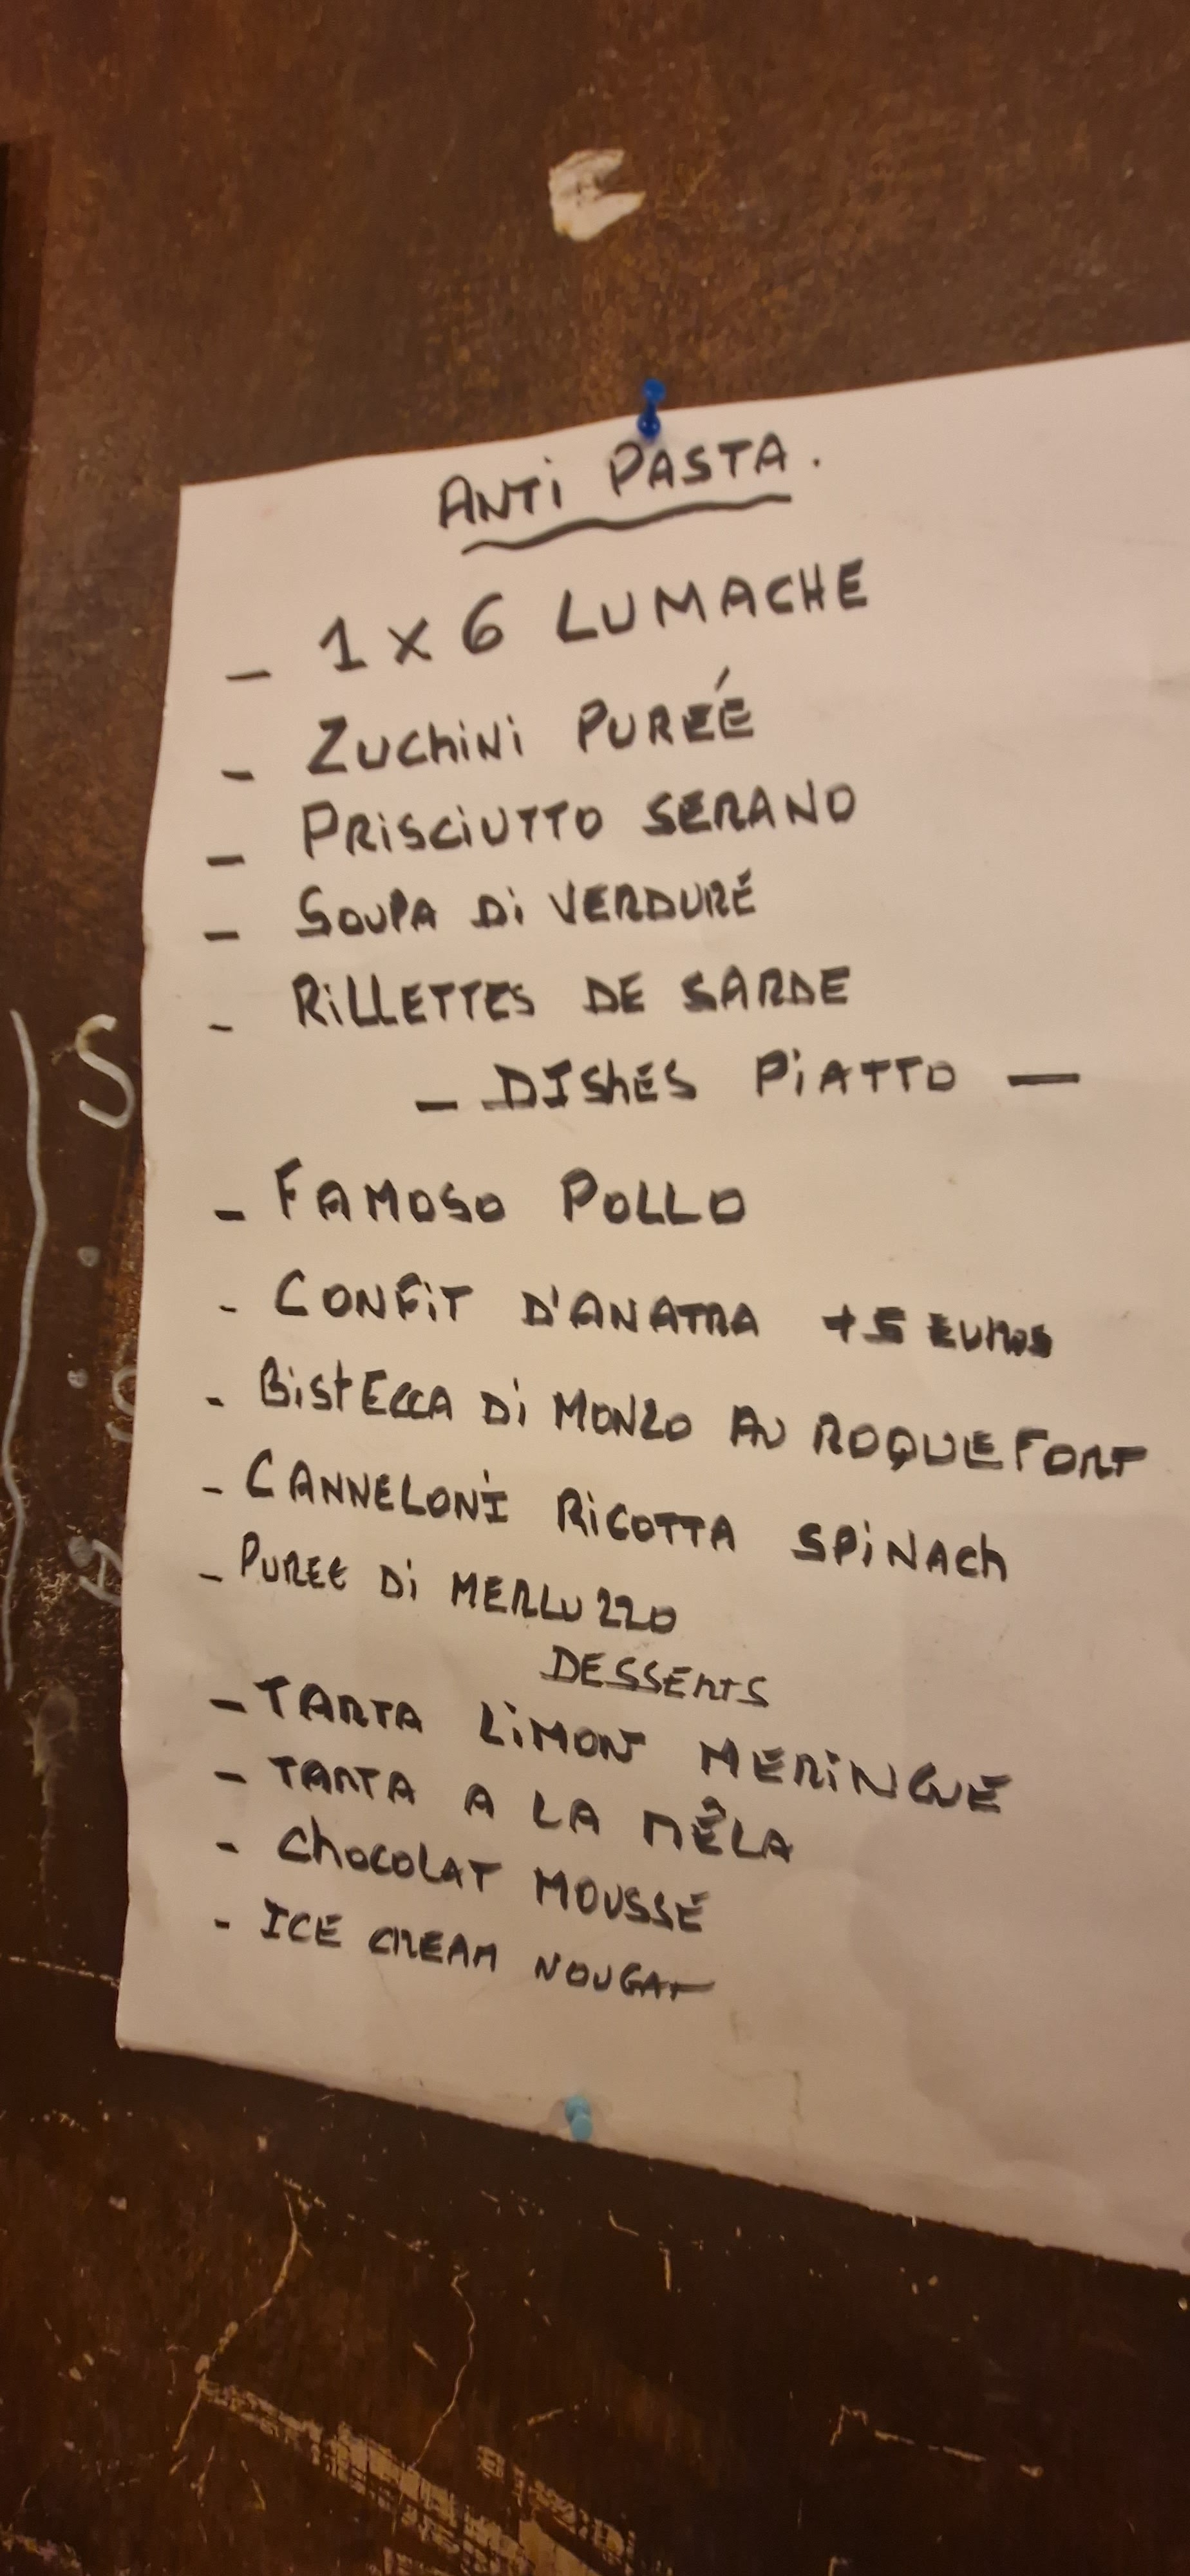 ANTI PASTA.
- 1 x 6 LUMACHE
- ZUCHINI PURÉÉ
- PRISCIUTTO SERANO
- SOUPA DI VERDURÉ
- RILLETTES DE SARDE
- DISHES PIATTO -
- FAMOSO POLLO
- CONFIT D'ANATRA +5 EUROS
- BISTECCA DI MONZO AU ROQUEFORT
- CANNELONI RICOTTA SPINACH
- PUREE DI MERLUZZO
DESSERTS
- TARTA LIMON MERINGUE
- TARTA A LA MÊLA
- CHOCOLAT MOUSSE
- ICE CREAM NOUGAT